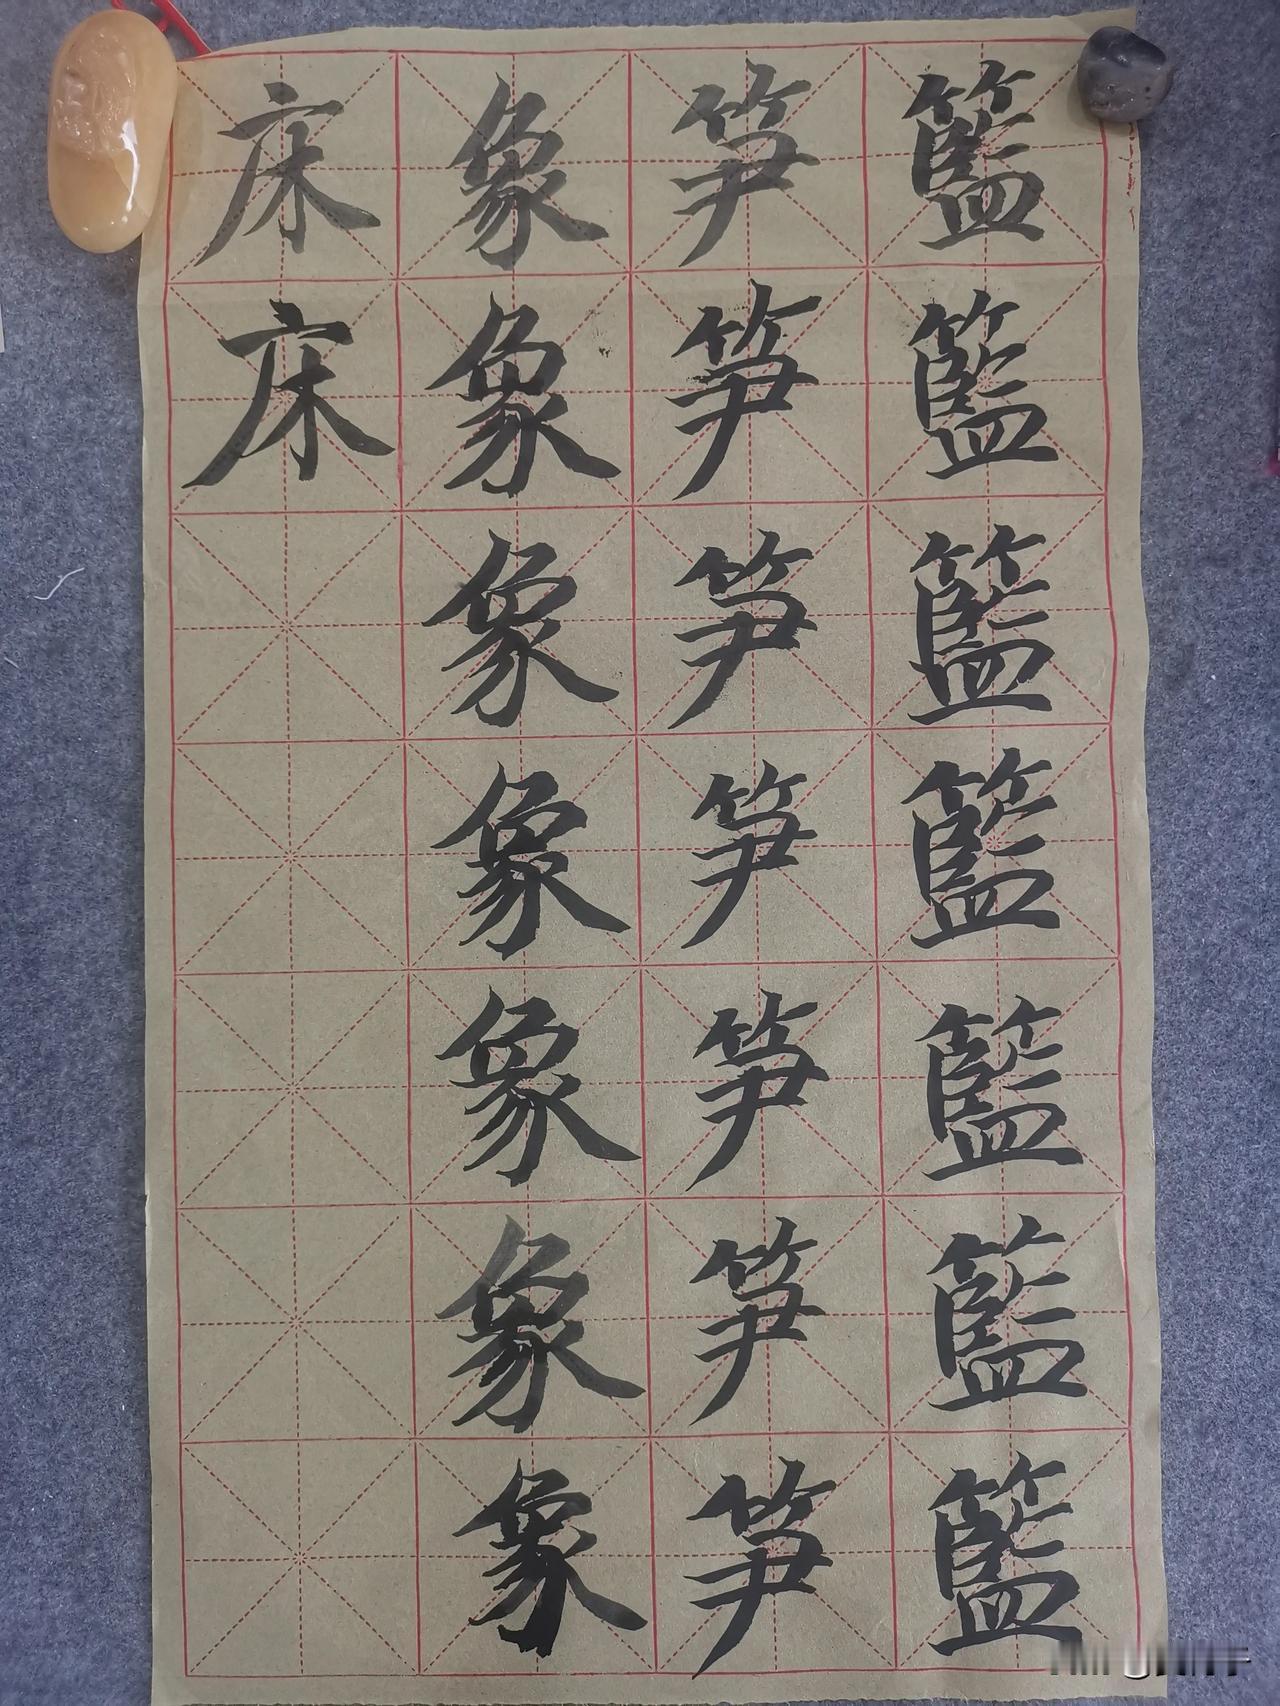 籃籃籃籃籃籃籃
笋笋笋笋笋笋笋
象象象象象象象
床床